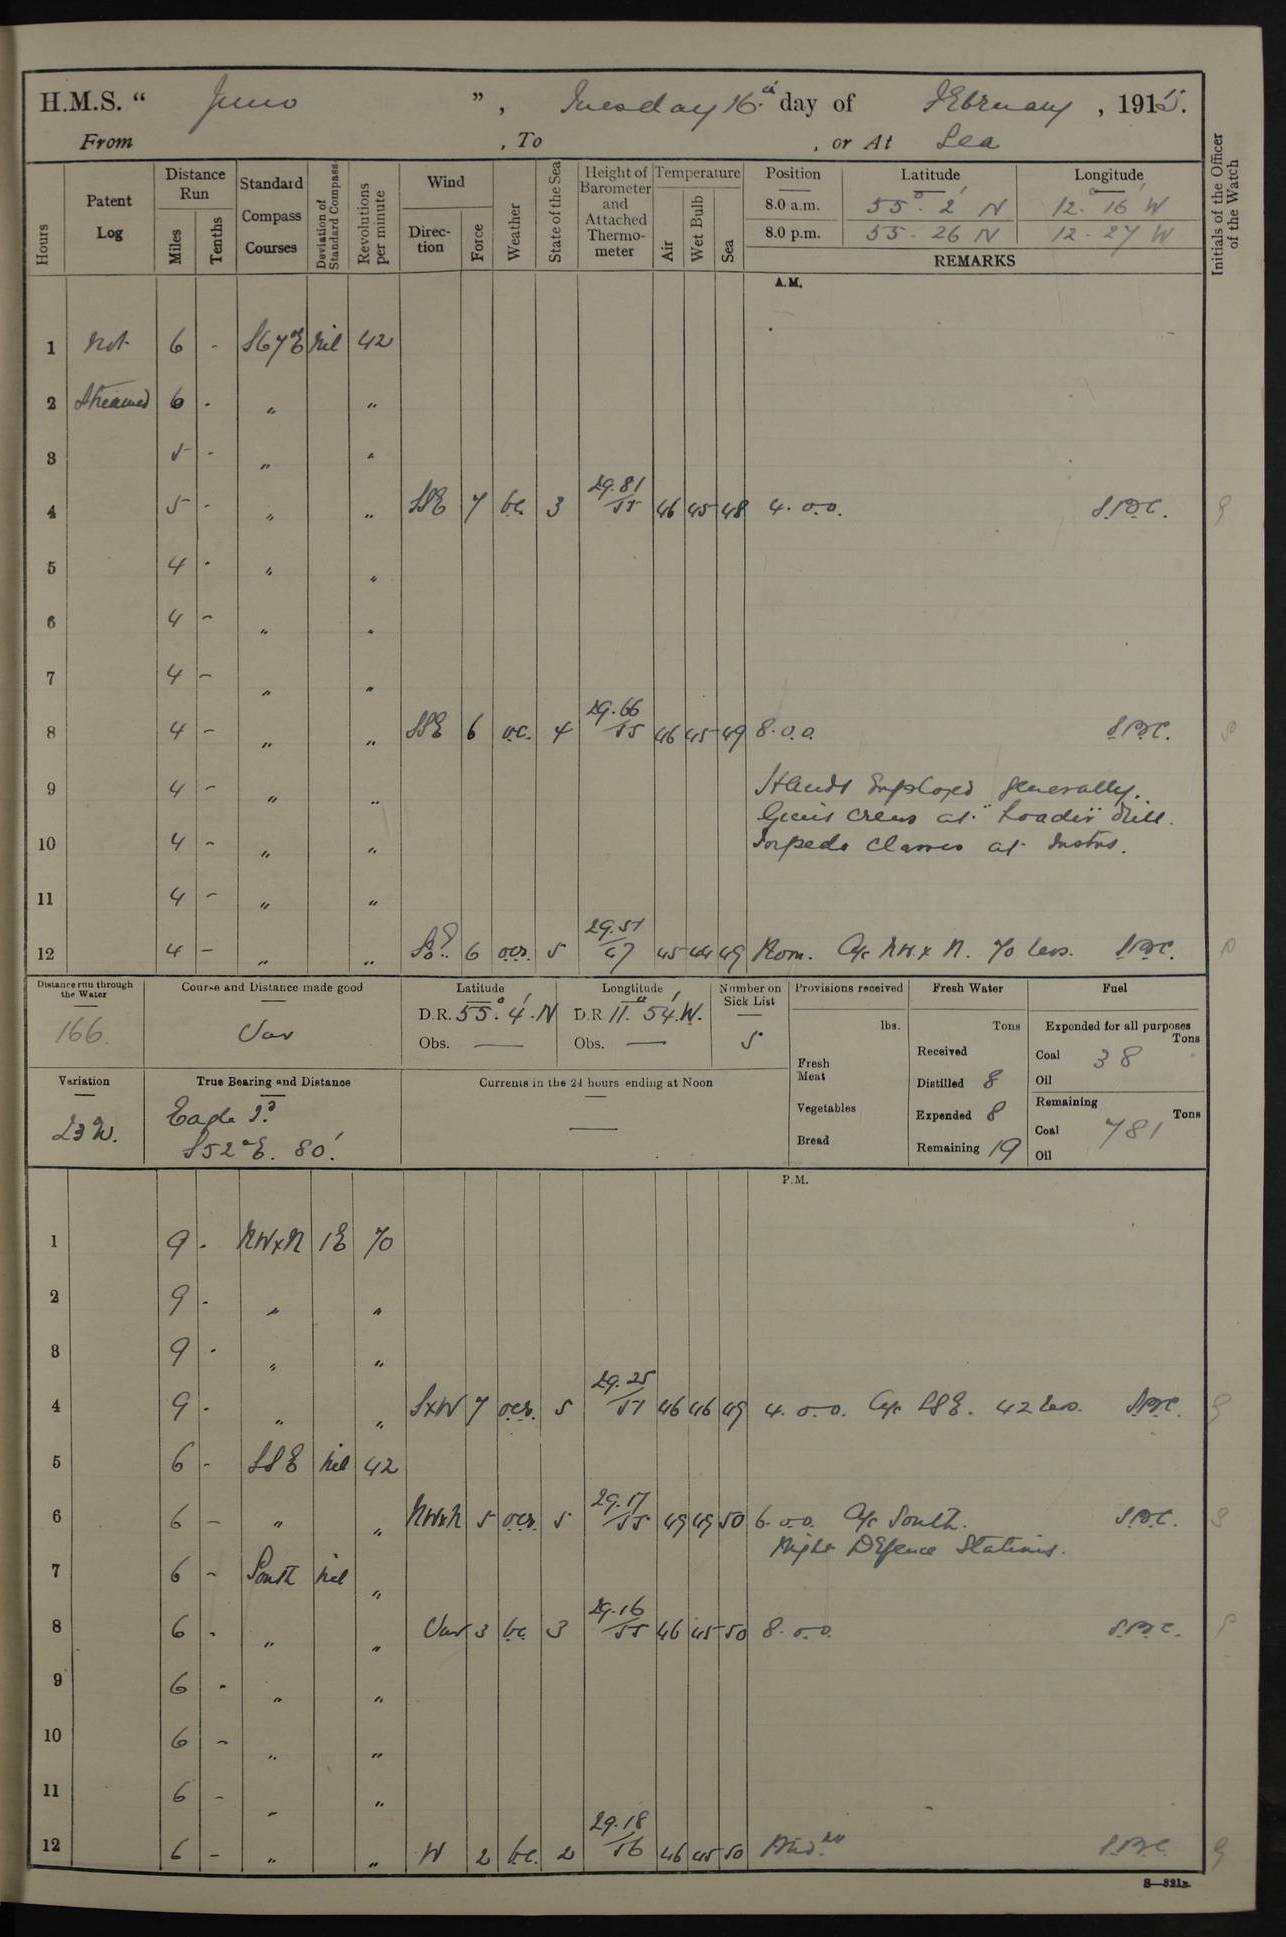 H.M.S. “ Juno ” , Tuesday 16th day of February , 1915.
From , To , or At Sea
Hours
Patent Log
Distance Run
Miles
Tenths
Standard Compass Courses
Deviation of Standard Compass
Revolutions per minute
Wind
Direction
Force
Weather
State of the Sea
Height of Barometer and Attached Thermometer
Temperature
Air
Wet Bulb
Sea
Position Latitude Longitude
8.0 a.m. 55° 2' N 12° 16' W
8.0 p.m. 55 · 26 N 12 · 27 W
REMARKS
Initials of the Officer of the Watch
A.M.
1 Not 6 - S67°E Nil 42
2 Streamed 6 - " "
3 5 - " "
4 5 - " " SSE 7 b.c. 3 29.81/55 46 45 48 4. 0.0.
5 4 - " "
6 4 - " "
7 4 - " "
8 4 - " " SSE 6 o.c. 4 29.66/55 46 45 49 8.0.0
9 4 - " " Hands Employed generally.
Guns crews at "Loader" drill.
10 4 - " " Torpedo Classes at Instns.
11 4 - " "
12 4 - " " 6 o.c.r. 5 29.51/57 45 44 49 Noon. A/c NW x N. 70 revs.
Distance run through the Water
166
Course and Distance made good
Var
Latitude
D.R. 55° 4' N
Obs. —
Longtitude
D.R 11° 54' W.
Obs. —
Number on Sick List
5
Provisions received
lbs.
Fresh Meat
Vegetables
Bread
Fresh Water
Tons
Received
Distilled 8
Expended 8
Remaining 19
Fuel
Expended for all purposes
Tons
Coal 38
Oil
Remaining
Tons
Coal 781
Oil
Variation
23 W.
True Bearing and Distance
Eagle Id
S52°E. 80'.
Currents in the 24 hours ending at Noon
—
P.M.
1 9 - NWxN 1E 70
2 9 - " "
3 9 - " "
4 9 - " " SxW 7 o.c.r. 5 29.25/57 46 46 49 4. 0.0. A/c SSE. 42 revs.
5 6 - SSE Nil 42
6 6 - " " NWxN 5 o.c.r. 5 29.17/55 49 49 50 6.0.0. A/c South.
Night Defence Stations.
7 6 - South Nil "
8 6 - " " Var 3 b.c. 3 29.16/55 46 45 50 8.0.0.
9 6 - " "
10 6 - " "
11 6 - " "
12 6 - " " W 2 b.c. 2 29.18/56 46 45 50 Midt
S—321a